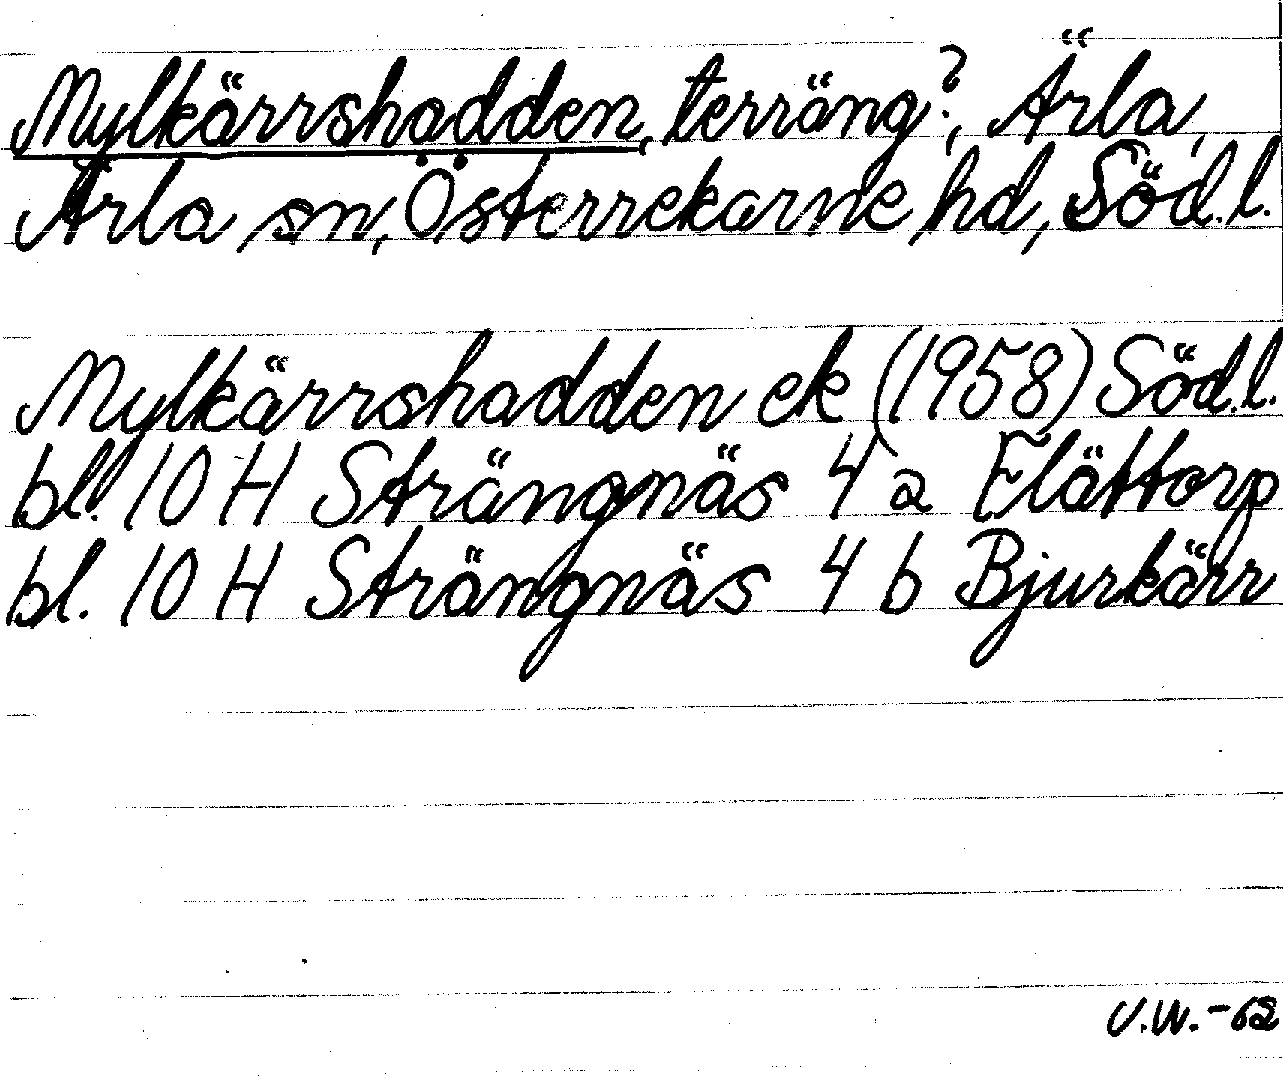 Mylkärrshadden, terräng?, Ärla,
Ärla sn, Österrekarne hd, Söd.l.
Mylkärrshadden ek (1958) Söd.l.
bl. 10 H Strängnäs 4 a Flättorp
bl. 10 H Strängnäs 4 b Bjurkärr
V.W.-62